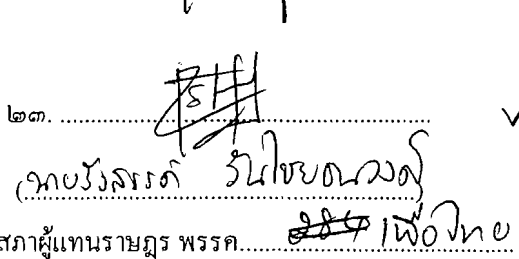 ๒๓. ........................................................
(นายรังสรรค์ วันไชยธนวงศ์
สภาผู้แทนราษฎร พรรค.................... เพื่อไทย